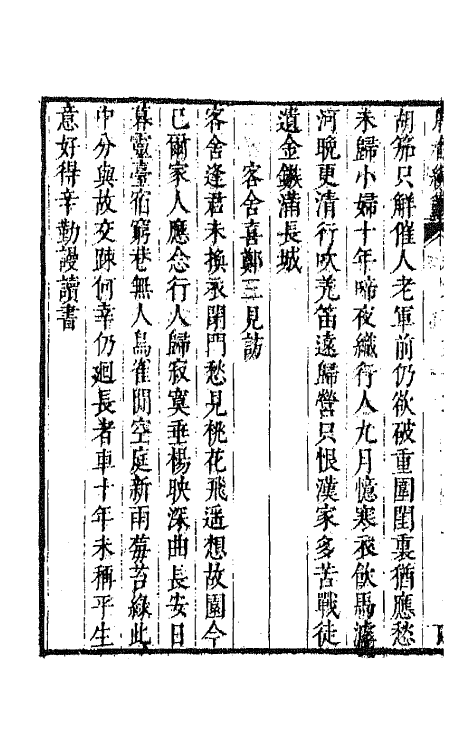 胡笳只解催人老軍前仍欲破重圍閨裏猶應愁
未歸小婦十年啼夜織行人九月憶寒衣飲馬滹
河晚更清行吹羌笛遠歸營只恨漢家多苦戰徒
遺金鏃滿長城
客舍喜鄭三見訪
客舍逢君未換衣閉門愁見桃花飛遥想故園今
已爾家人應念行人歸寂寞垂楊映深曲長安日
暮靈臺宿窮巷無人鳥雀閒空庭新雨莓苔綠此
中分與故交踈何幸仍廻長者車十年未稱平生
意好得辛勤謾讀書